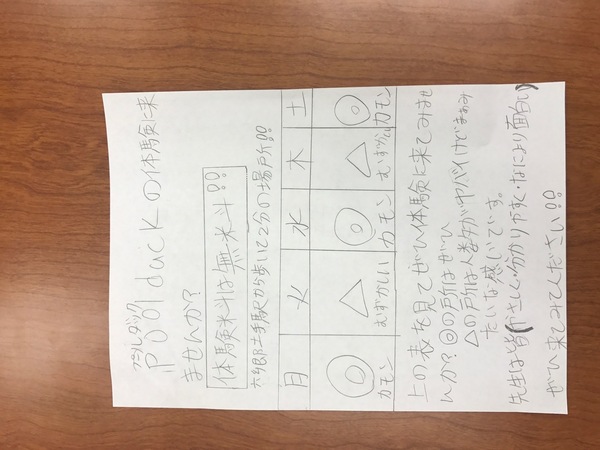 プールダック
Pool duckの体験に来
ませんか?
体験料は無料!!
六郷土手駅から歩いて2分の場所!!
月 火 水 木 土
◎ △ ◎ △ ◎
カモン むずかしい カモン むずかしい カモン
上の表を見てぜひ体験に来てみませ
んか?◎の所はぜひ
△の所は人数がヤバイけどまぁみ
たいな感じです。
先生は皆(やさしい・分かりやすく・なにより面白い)
ぜひ来てみてください!!